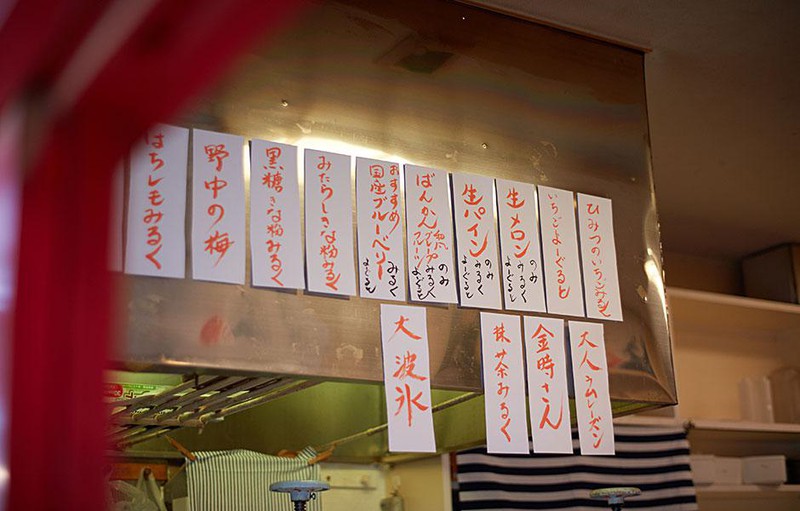 ひみつのいちごみるく
いちごよーぐると
生メロン
のみ
みるく
よーぐると
生パイン
のみ
みるく
よーぐると
ばんかん
グレープフルーツ
のみ
みるく
よーぐると
おすすめ!
国産ブルーベリー
みるく
よーぐると
みたらしきな粉みるく
黒糖きな粉みるく
野中の梅
はちレモみるく
大人ラムレーズン
金時さん
抹茶みるく
大波氷